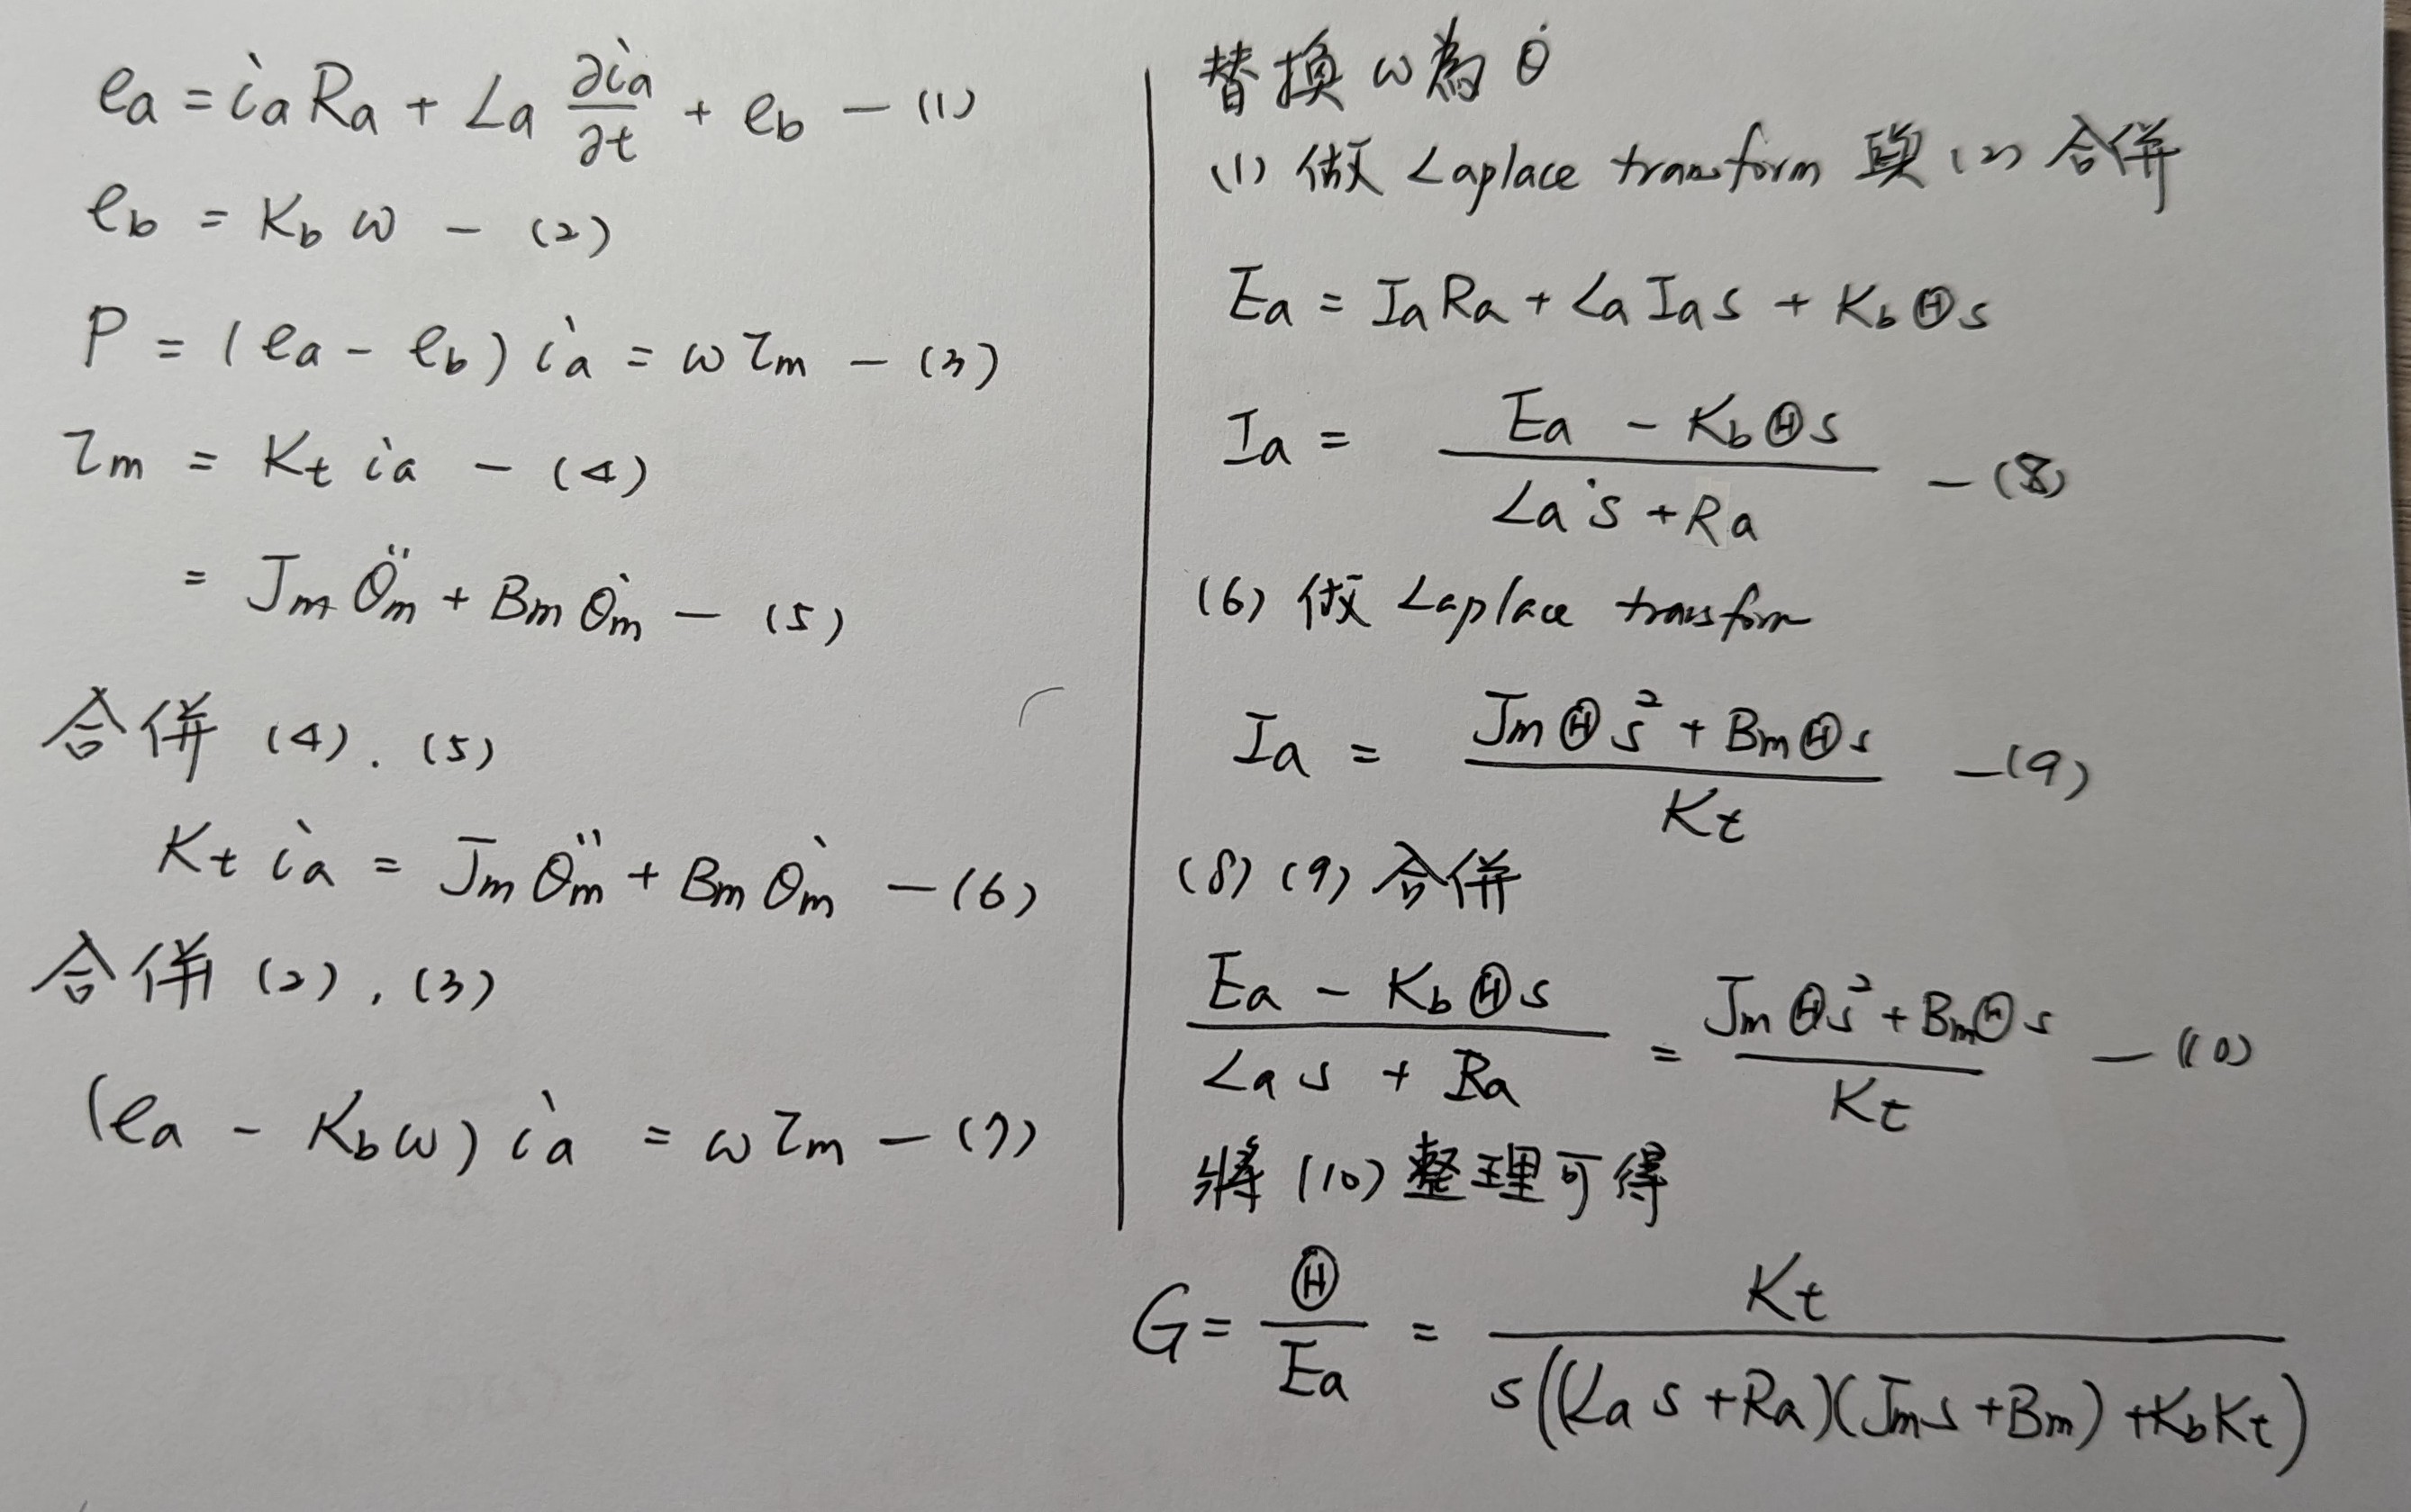 ea = ia Ra + La ∂ia/∂t + eb — (1)
eb = Kb ω — (2)
P = (ea - eb) ia = ω τm — (3)
τm = Kt ia — (4)
= Jm θ̈m + Bm θ̇m — (5)
合併 (4). (5)
Kt ia = Jm θ̈m + Bm θ̇m — (6)
合併 (2), (3)
(ea - Kb ω) ia = ω τm — (7)
替換 ω 為 θ̇
(1) 做 Laplace transform 與 (2) 合併
Ea = Ia Ra + La Ia s + Kb Θ s
Ia = (Ea - Kb Θ s) / (La s + Ra) — (8)
(6) 做 Laplace transform
Ia = (Jm Θ s² + Bm Θ s) / Kt — (9)
(8) (9) 合併
(Ea - Kb Θ s) / (La s + Ra) = (Jm Θ s² + Bm Θ s) / Kt — (10)
將 (10) 整理可得
G = Θ / Ea = Kt / s((La s + Ra)(Jm s + Bm) + Kb Kt)